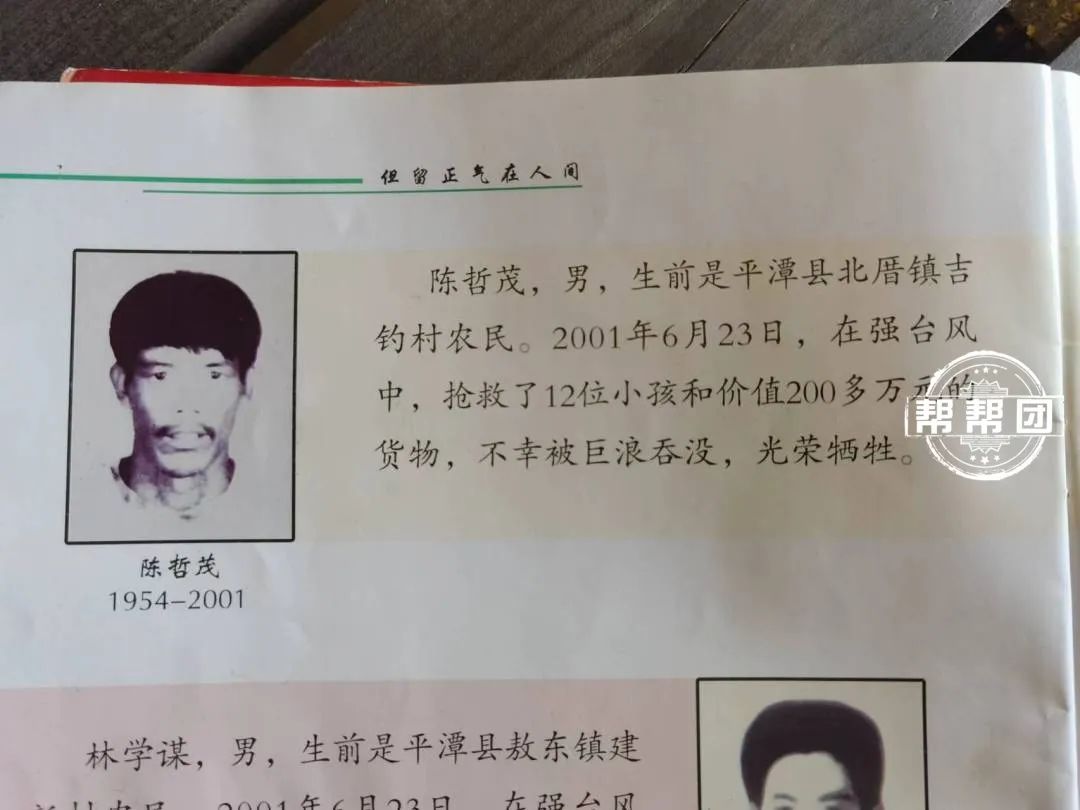 但留正气在人间
陈哲茂，男，生前是平潭县北厝镇吉
钓村农民。2001年6月23日，在强台风
中，抢救了12位小孩和价值200多万元的
货物，不幸被巨浪吞没，光荣牺牲。
帮帮团
陈哲茂
1954–2001
林学谋，男，生前是平潭县敖东镇建
村农民。2001年6月23日，在强台风